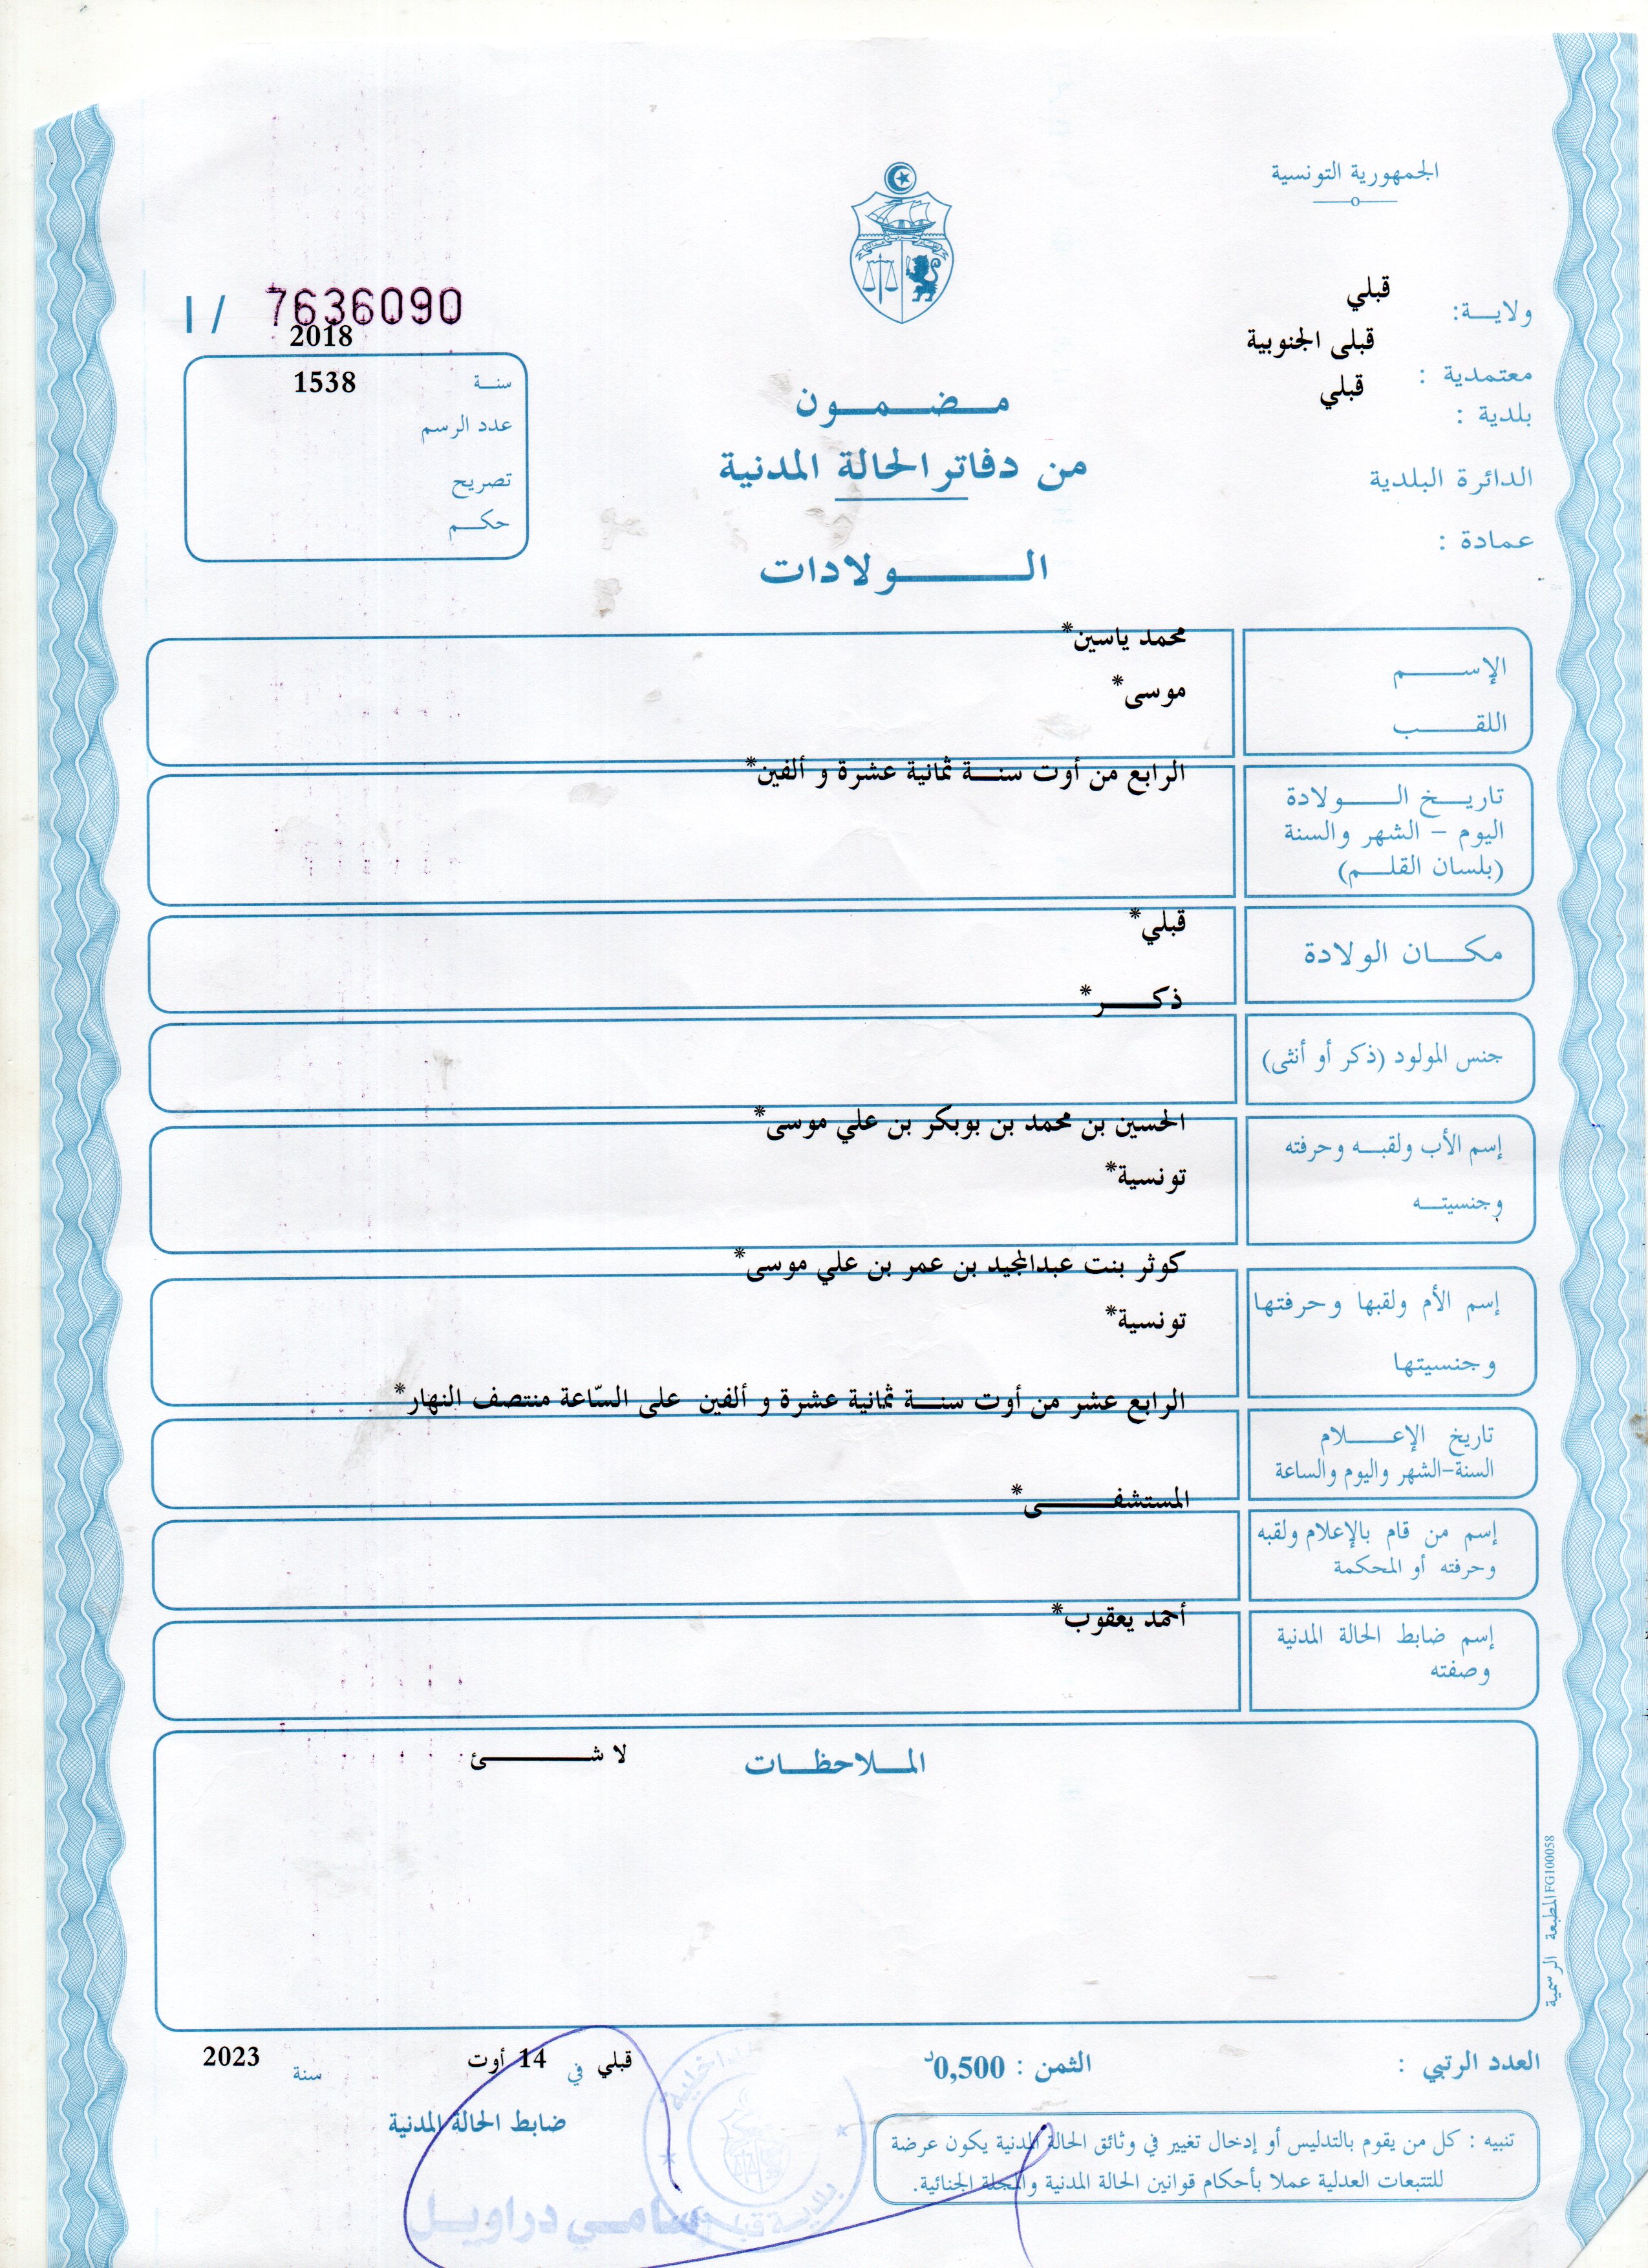 الجمهورية التونسية
ولايـــة: قبلي
معتمدية : قبلى الجنوبية
بلدية : قبلي
الدائرة البلدية
عمادة :
I / 7636090
2018
سنــة 1538
عدد الرسم
تصريح
حكــم
مــضــمــون
من دفاتر الحالة المدنية
الــولادات
الإســـم محمد ياسين*
اللقـــب موسى*
تاريــخ الـــولادة الرابع من أوت سنـــة ثمانية عشرة و ألفين*
اليوم – الشهر والسنة
(بلسان القلــم)
مكـــان الولادة قبلي*
ذكـــر*
جنس المولود (ذكر أو أنثى)
إسم الأب ولقبــه وحرفته الحسين بن محمد بن بوبكر بن علي موسى*
وجنسيتــه تونسية*
إسم الأم ولقبها وحرفتها كوثر بنت عبدالمجيد بن عمر بن علي موسى*
وجنسيتها تونسية*
تاريخ الإعـــلام الرابع عشر من أوت سنـــة ثمانية عشرة و ألفين على السّاعة منتصف النهار*
السنة-الشهر واليوم والساعة
المستشفـــى*
إسم من قام بالإعلام ولقبه
وحرفته أو المحكمة
أحمد يعقوب*
إسم ضابط الحالة المدنية
وصفته
المــلاحظــات
لا شـــئ
المطبعة الرسمية FG100058
العدد الرتبي :
الثمن : 0,500د
قبلي في 14 أوت سنة 2023
ضابط الحالة المدنية
تنبيه : كل من يقوم بالتدليس أو إدخال تغيير في وثائق الحالة المدنية يكون عرضة
للتتبعات العدلية عملا بأحكام قوانين الحالة المدنية والمجلة الجنائية.
سامي دراويل